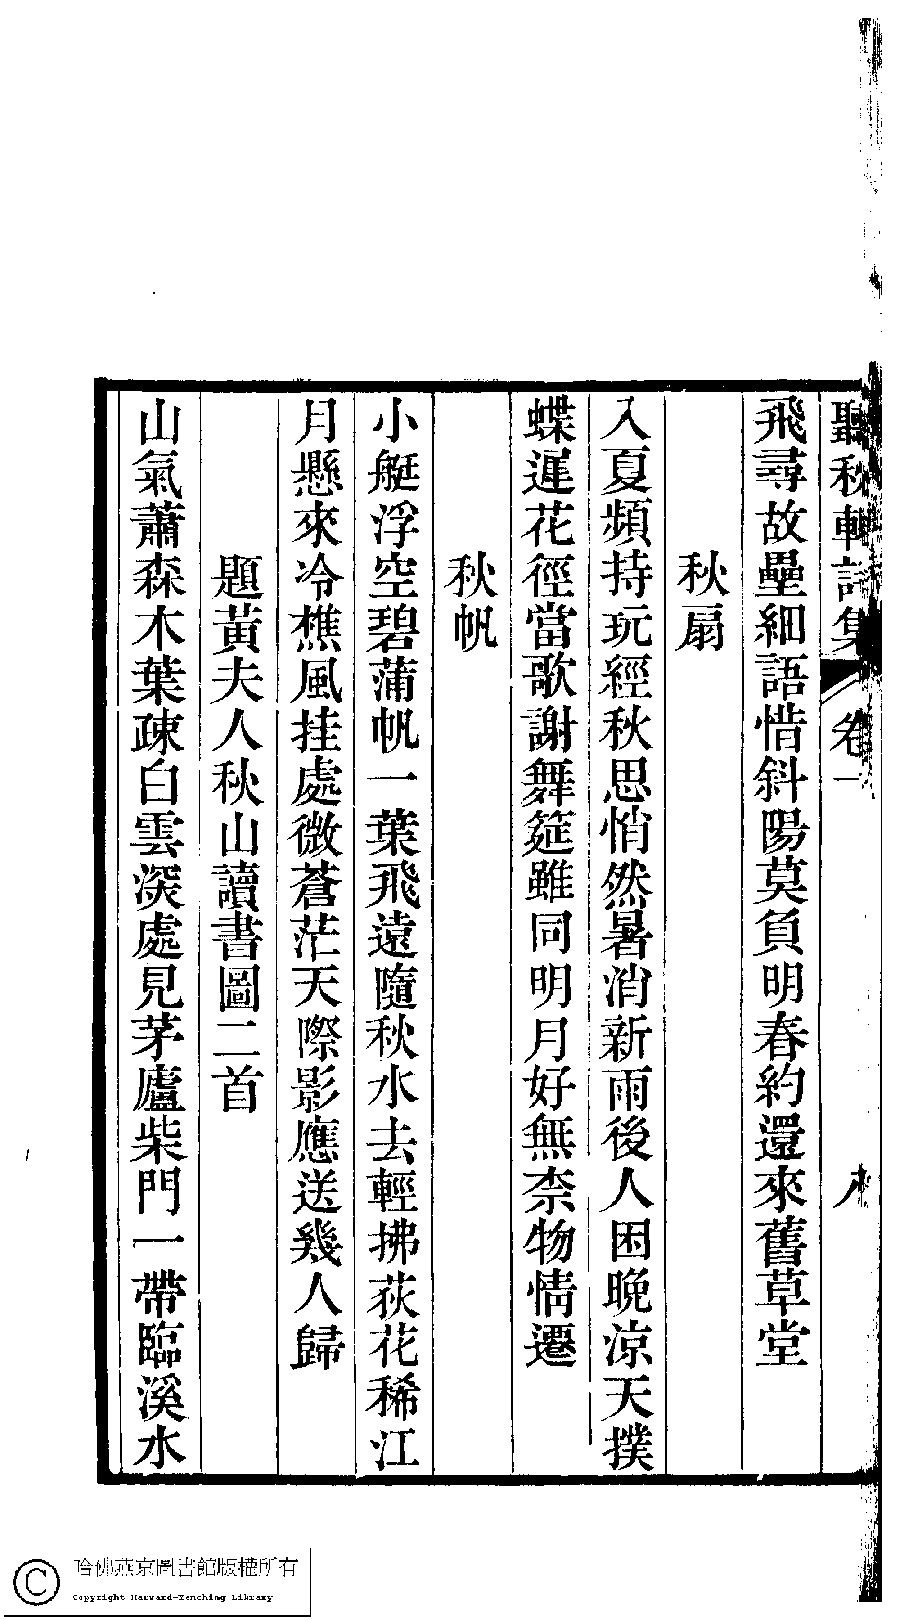 聽秋軒詩集 卷一 八
飛尋故壘細語惜斜陽莫負明春約還來舊草堂
秋扇
入夏頻持玩經秋思悄然暑消新雨後人困晚涼天撲
蝶遲花徑當歌謝舞筵雖同明月好無柰物情遷
秋帆
小艇浮空碧蒲帆一葉飛遠隨秋水去輕拂荻花稀江
月懸來冷樵風挂處微蒼茫天際影應送幾人歸
題黃夫人秋山讀書圖二首
山氣蕭森木葉疎白雲深處見茅廬柴門一帶臨溪水
哈佛燕京圖書館版權所有
Copyright Harvard-Yenching Library